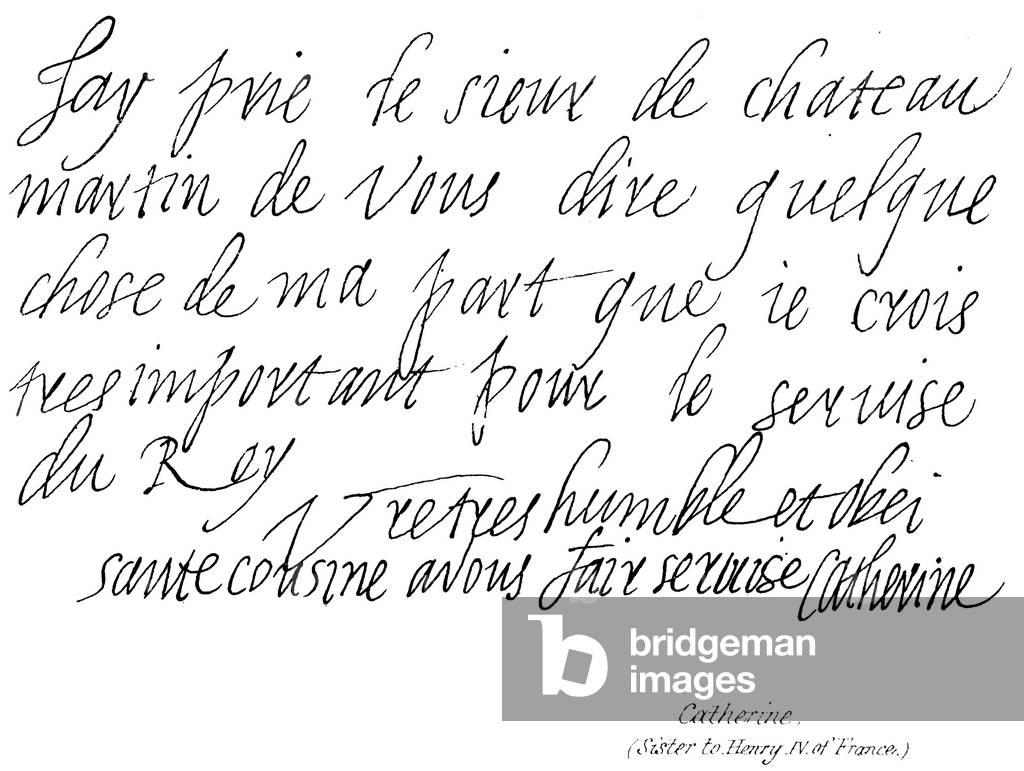 Jay prie le sieur de chateau
martin de vous dire quelque
chose de ma part que ie crois
tres important pour le seruise
du Rey
Vre tres humble et obei
sante cousine a vous fair seruise Catherine
bridgeman
images
Catherine.
(Sister to Henry IV. of France.)